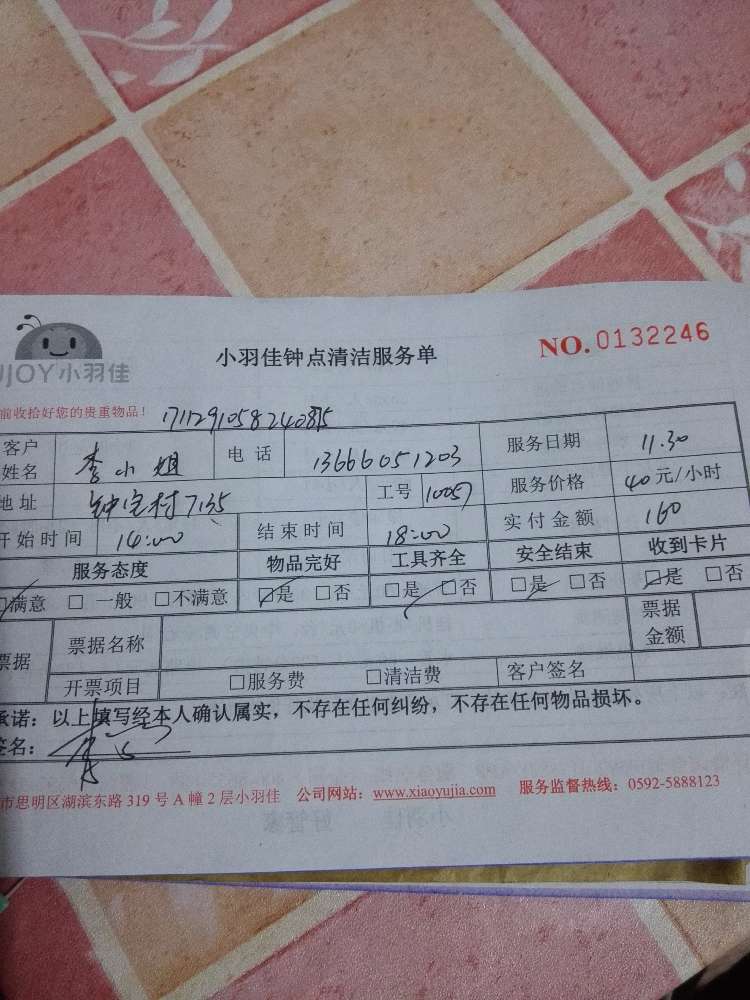 小羽佳钟点清洁服务单 NO.0132246
UJOY小羽佳
前收拾好您的贵重物品！
客户姓名 李小姐 电话 13666051203 服务日期 11.30
地址 7135 工号 10057 服务价格 40元/小时
开始时间 14:00 结束时间 18:00 实付金额 160
服务态度 物品完好 工具齐全 安全结束 收到卡片
□满意 □一般 □不满意 □是 □否 □是 □否 □是 □否 □是 □否
票据 票据名称 票据金额
开票项目 □服务费 □清洁费 客户签名
承诺：以上填写经本人确认属实，不存在任何纠纷，不存在任何物品损坏。
签名：
市思明区湖滨东路319号A幢2层小羽佳 公司网站：www.xiaoyujia.com 服务监督热线：0592-5888123